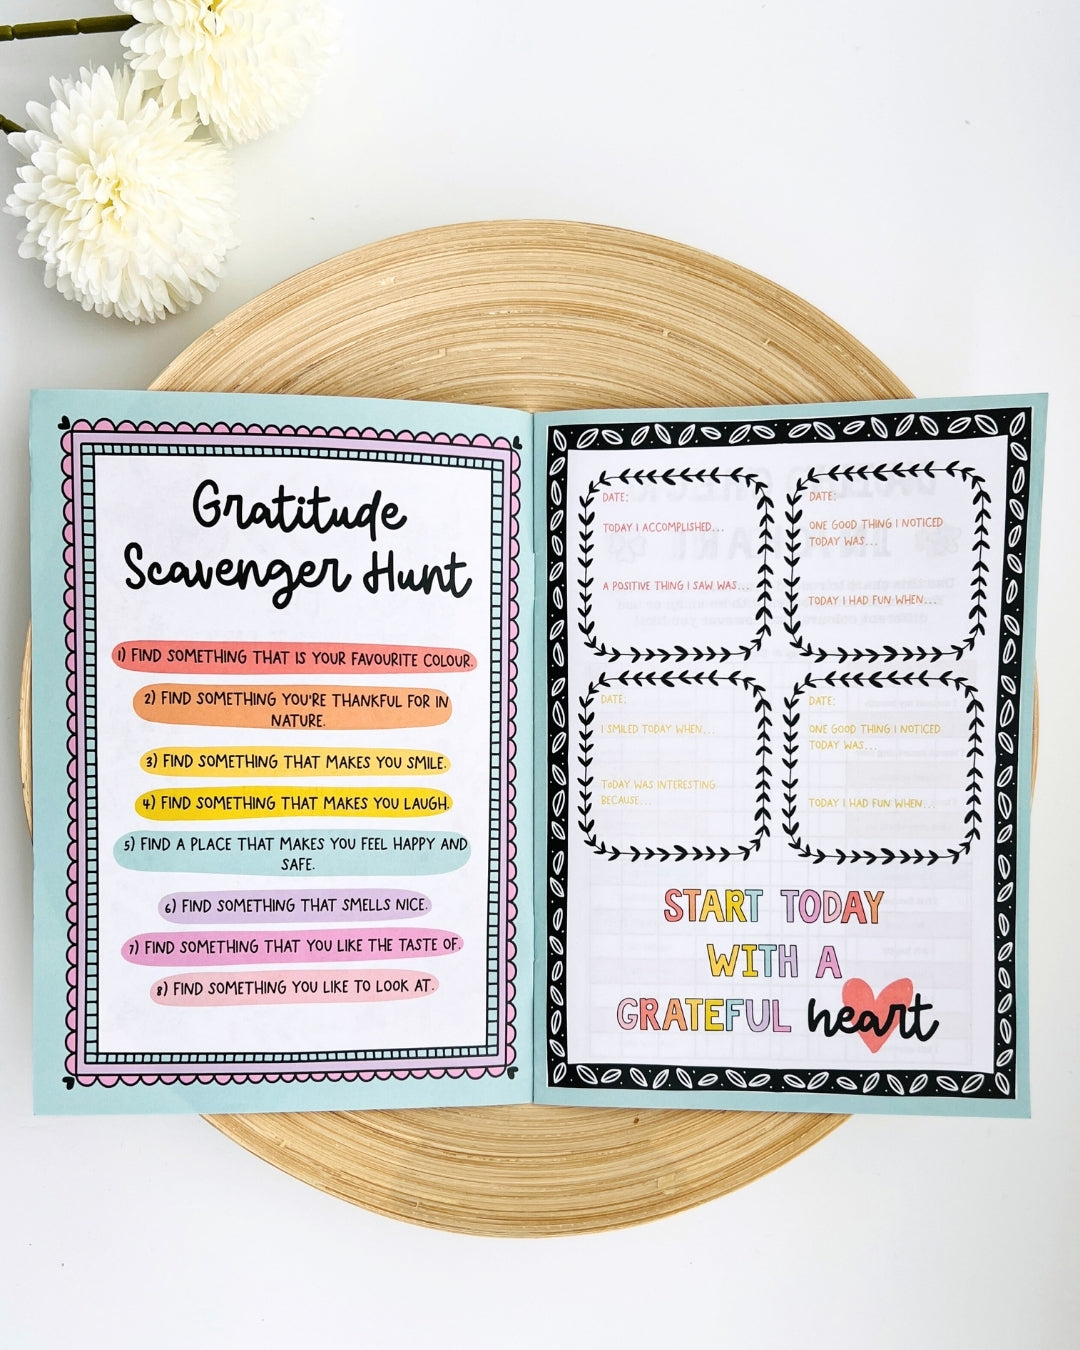 Gratitude
Scavenger Hunt
1) FIND SOMETHING THAT IS YOUR FAVOURITE COLOUR.
2) FIND SOMETHING YOU'RE THANKFUL FOR IN
NATURE.
3) FIND SOMETHING THAT MAKES YOU SMILE.
4) FIND SOMETHING THAT MAKES YOU LAUGH.
5) FIND A PLACE THAT MAKES YOU FEEL HAPPY AND
SAFE.
6) FIND SOMETHING THAT SMELLS NICE.
7) FIND SOMETHING THAT YOU LIKE THE TASTE OF.
8) FIND SOMETHING YOU LIKE TO LOOK AT.
DATE:
TODAY I ACCOMPLISHED...
A POSITIVE THING I SAW WAS...
DATE:
ONE GOOD THING I NOTICED
TODAY WAS...
TODAY I HAD FUN WHEN...
DATE:
I SMILED TODAY WHEN...
TODAY WAS INTERESTING
BECAUSE...
DATE:
ONE GOOD THING I NOTICED
TODAY WAS...
TODAY I HAD FUN WHEN...
START TODAY
WITH A
GRATEFUL heart